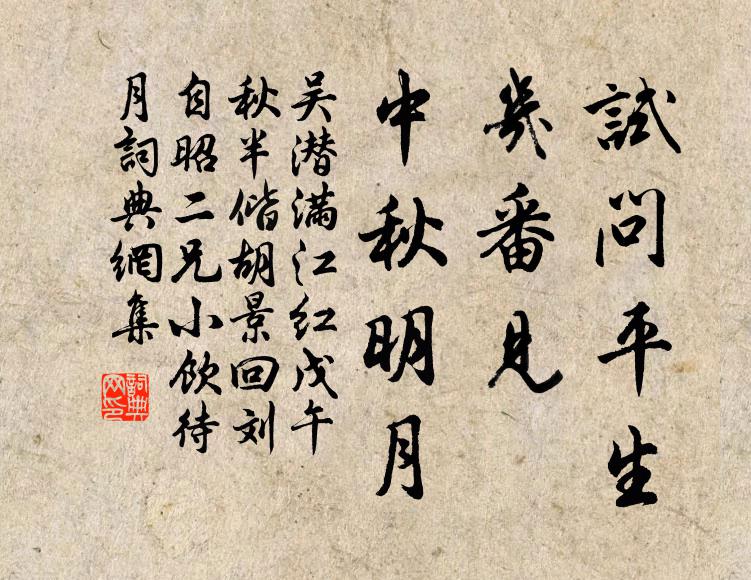 試問平生
幾番見
中秋明月
吴潜满江红戊午
秋半偕胡景回刘
自昭二兄小飲待
月詞典網集
詞典网印